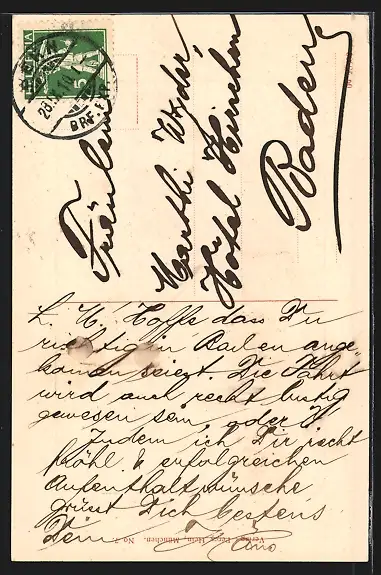 Fräulein
Marthli Wyder
Hotel Hirschen
Baden
L. M. Hoffe dass Du
richtig in Baden ange-
kommen seiest. Die Fahrt
wird auch recht lustig
gewesen sein, oder?
Indem ich Dir recht
fröhl. & erfolgreichen
Aufenthalt wünsche
grüsst Dich bestens
Dein
Verlag Percy Hein, München. No. 7.